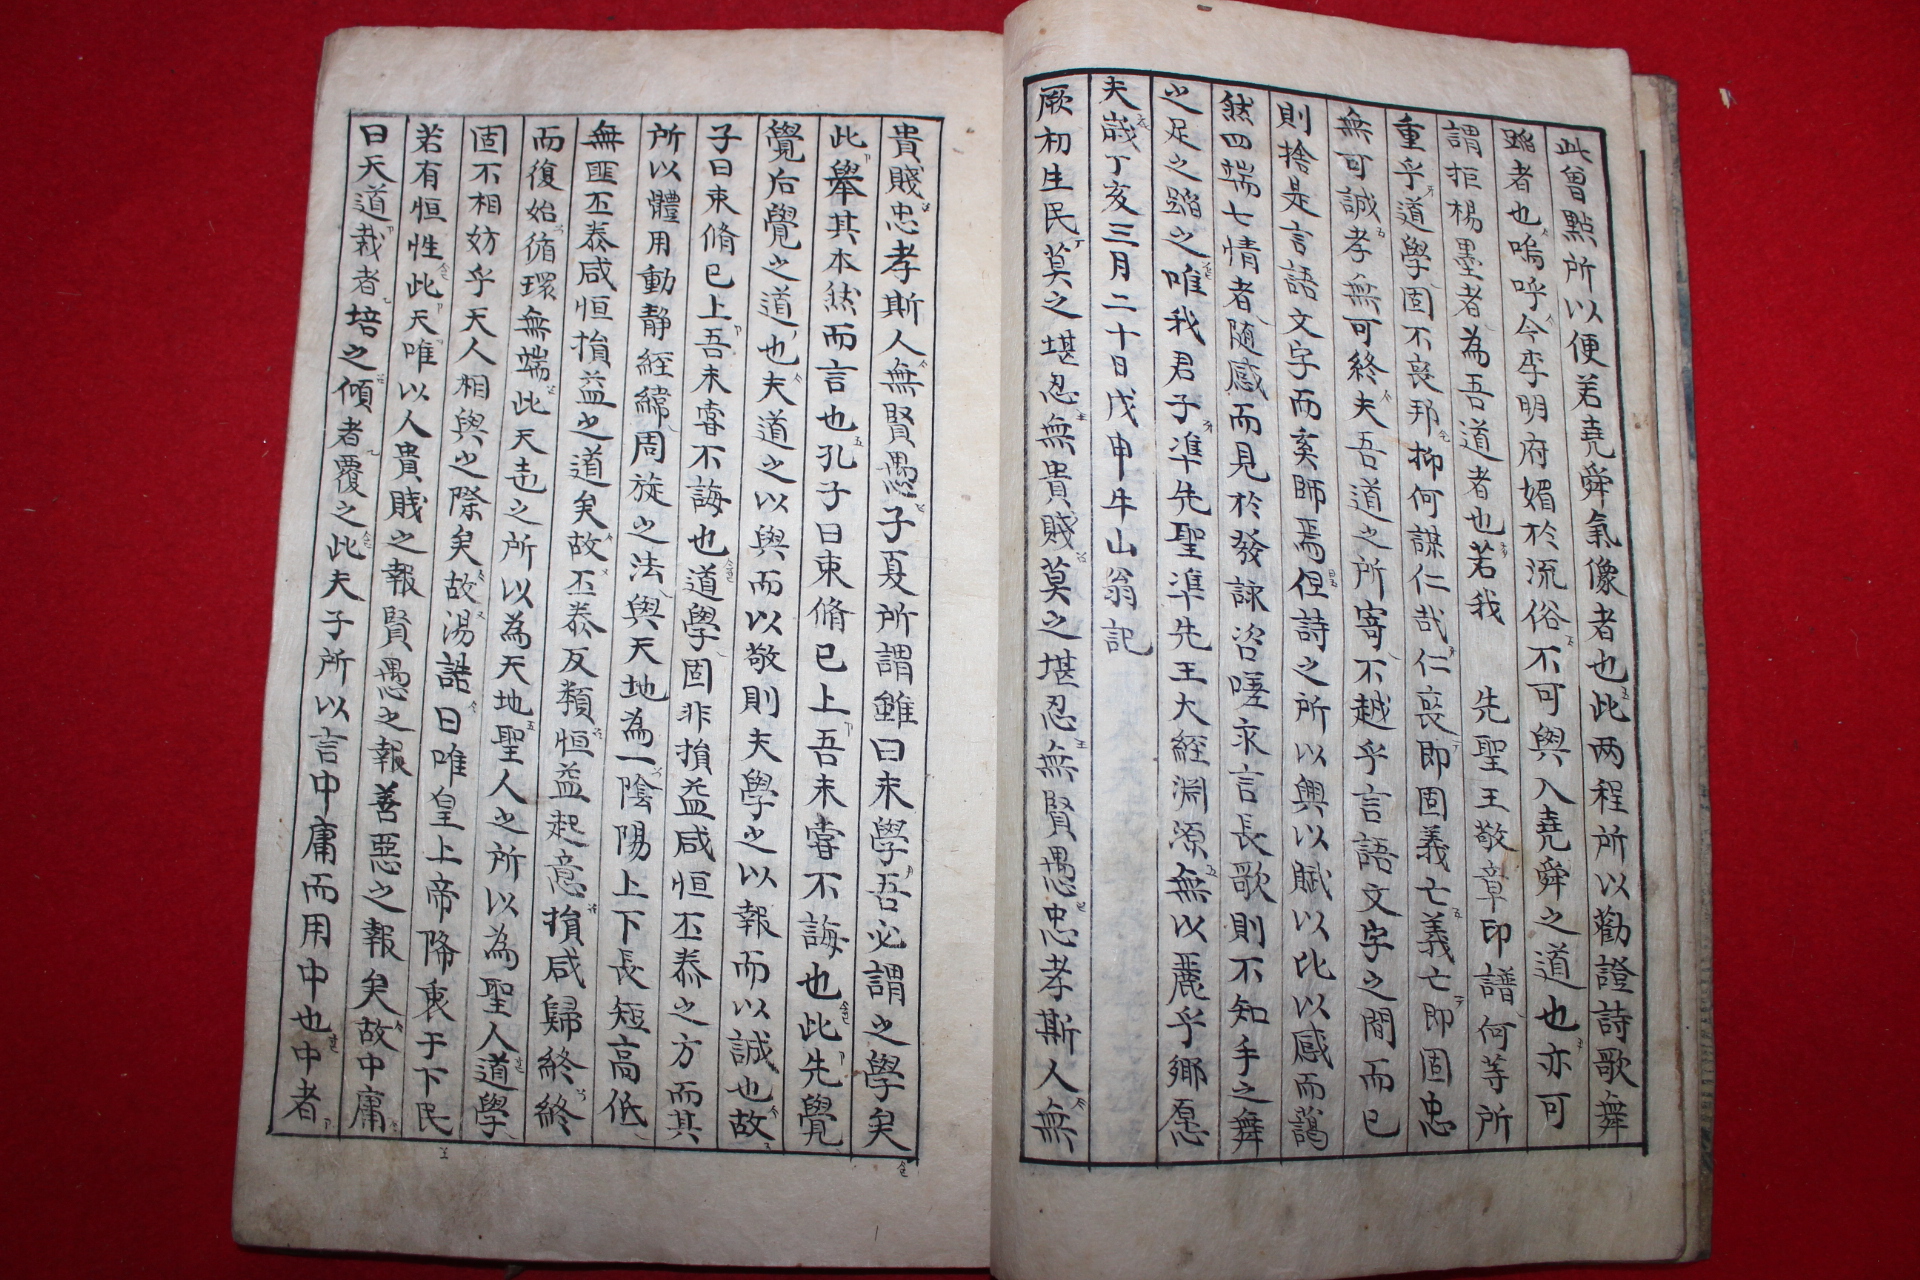 此曾點所以便若堯舜氣像者也此两程所以勸證詩歌舞
蹈者也嗚呼今李明府媚於流俗不可與入堯舜之道也亦可
謂拒楊墨者為吾道者也若我 先聖王敬章印譜何等所
重乎道學固不丧邦抑何謀仁哉仁丧即固義亡義亡即固忠
無可誠孝無可終夫吾道之所寄不越乎言語文字之間而已
則捨是言語文字而奚師焉但詩之所以興以賦以比以感而藹
然四端七情者随感而見於發詠咨嗟永言長歌則不知手之舞
之足之蹈之唯我君子準先聖準先王大經淵源無以麗乎鄉愿
夫歲丁亥三月二十日戊申牛山翁記
厥初生民莫之堪忍無貴賤莫之堪忍無賢愚忠孝斯人無
貴賤忠孝斯人無賢愚子夏所謂雖曰未學吾必謂之學矣
此舉其本然而言也孔子曰束脩已上吾未嘗不誨也此先覺
覺后覺之道也夫道之以與而以敬則夫學之以報而以誠也故
子曰束脩已上吾未嘗不誨也道學固非損益咸恒丕泰之方而其
所以體用動靜經緯周旋之法與天地為一陰陽上下長短高低
無匪丕泰咸恒損益之道矣故丕泰反類恒益起意損咸歸終終
而復始循環無端此天之所以為天地聖人之所以為聖人道學
固不相妨乎天人相與之際矣故湯誥曰唯皇上帝降衷于下民
若有恒性此天唯以人貴賤之報賢愚之報善惡之報矣故中庸
曰天道栽者培之傾者覆之此夫子所以言中庸而用中也中者